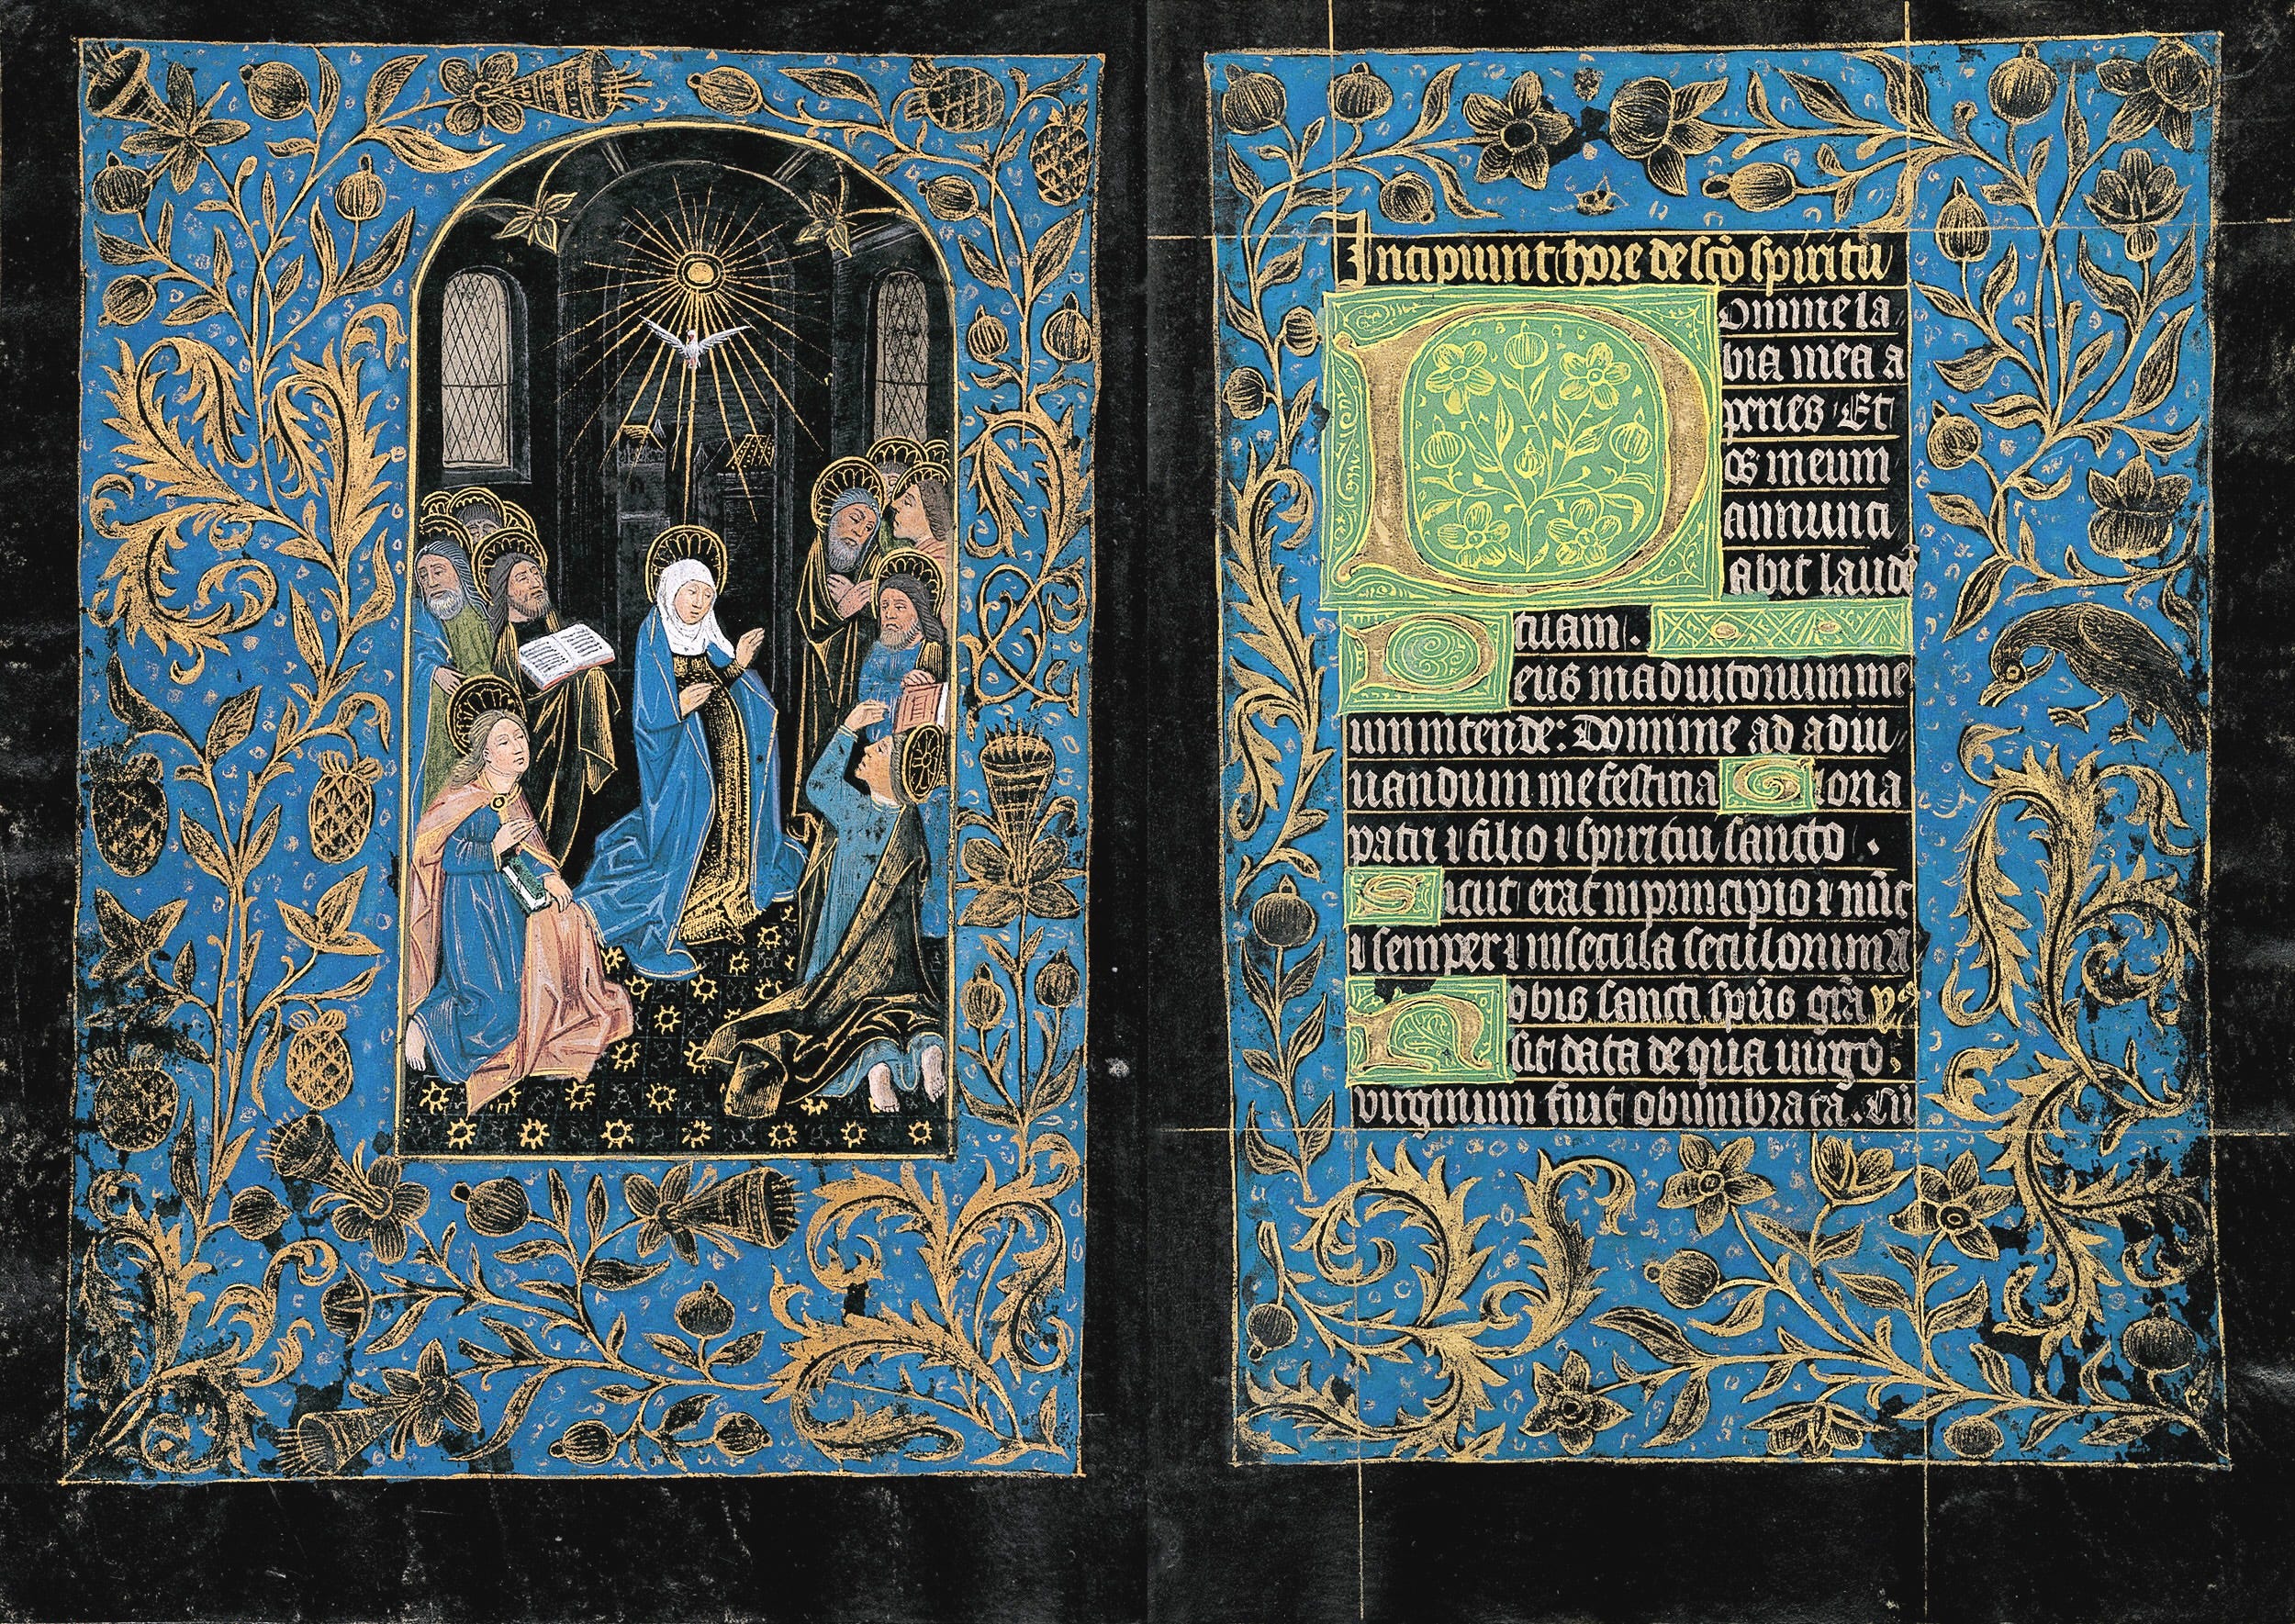 Incipiunt hore de sc̄o spiritu
Domine la
bia mea a
peries Et
os meum
annunci
abit laudē
tuam.
Deus in adiutorium me
um intende: Domine ad adiu
uandum me festina Gloria
patri ⁊ filio ⁊ spiritui sancto.
Sicut erat in principio ⁊ nūc
⁊ semper ⁊ in secula seculorum A
Nobis sancti sp̄us gr̄a yꝰ
sit data de qua uirgo
virginum fuit obumbrata. Cū